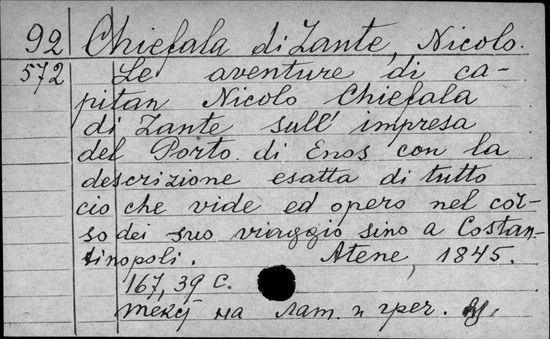 92 Chiefala di Zante, Nicolo.
572 Le aventure di ca-
pitan Nicolo Chiefala
di Zante sull' impresa
del Porto di Enos con la
descrizione esatta di tutto
cio che vide ed opero nel cor-
so dei suo viaggio sino a Costan-
tinopoli. Atene, 1845.
167, 39 c.
текст на лат. и грег.